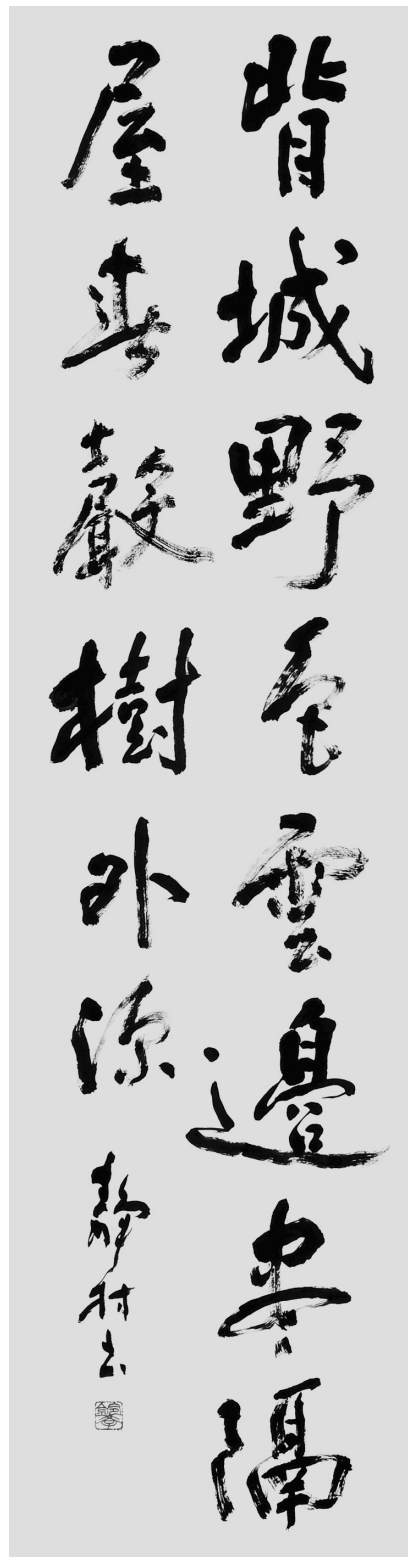 背城野色雲邊盡隔
屋春聲樹外深
靜村書